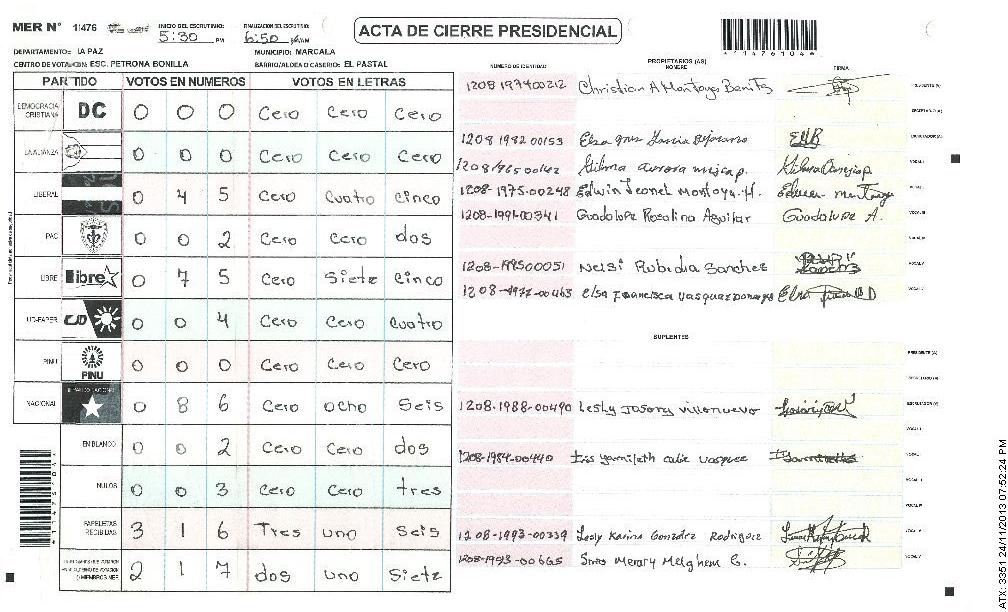 MER N° 11476 INICIO DEL ESCRUTINIO: 5:30 PM FINALIZACION DEL ESCRUTINIO: 6:50 PM
ACTA DE CIERRE PRESIDENCIAL
*114761046*
DEPARTAMENTO: LA PAZ MUNICIPIO: MARCALA
CENTRO DE VOTACION: ESC. PETRONA BONILLA BARRIO/ALDEA O CASERIO: EL PASTAL
PARTIDO VOTOS EN NUMEROS VOTOS EN LETRAS
DEMOCRACIA CRISTIANA DC 0 0 0 Cero Cero Cero
LA ALIANZA 0 0 0 Cero Cero Cero
LIBERAL 0 4 5 Cero Cuatro cinco
PAC 0 0 2 Cero Cero dos
LIBRE libre 0 7 5 Cero Siete Cinco
UD-FAPER UD 0 0 4 Cero Cero Cuatro
PINU PINU 0 0 0 Cero Cero Cero
NACIONAL 0 8 6 Cero Ocho Seis
EN BLANCO 0 0 2 Cero Cero dos
NULOS 0 0 3 Cero Cero tres
PAPELETAS RECIBIDAS 3 1 6 Tres uno Seis
2 1 7 dos uno Siete
PROPIETARIOS (AS)
NUMERO DE IDENTIDAD NOMBRE FIRMA
1208 197400212 Christian A Montoya Benitz PRESIDENTE (A)
SECRETARIO (A)
1208 1982 00153 Elsa ESCRUTADOR (A)
Gilma aurora VOCAL I
1208-1975-00248 Edwin Leonel Montoya. H. VOCAL II
1208-1991-00341 Guadalupe Rosalina Aguilar Guadalupe A. VOCAL III
VOCAL IV
1208-199500051 Nelsi Rubidia Sanchez VOCAL V
1208-1977-00463 Elsa Francisca Vasquez VOCAL
SUPLENTES
PRESIDENTE (A)
SECRETARIO (A)
1208-1988-00490 Lesly Villanueva ESCRUTADOR (A)
VOCAL I
1208-1984-00440 Iris Yamileth VOCAL
VOCAL
VOCAL IV
1208-1993-00339 Lesly Karina González Rodriguez VOCAL V
1208-1993-00665 Merary Melghem G. VOCAL
ATX: 3351 24/11/2013 07:52:24 PM